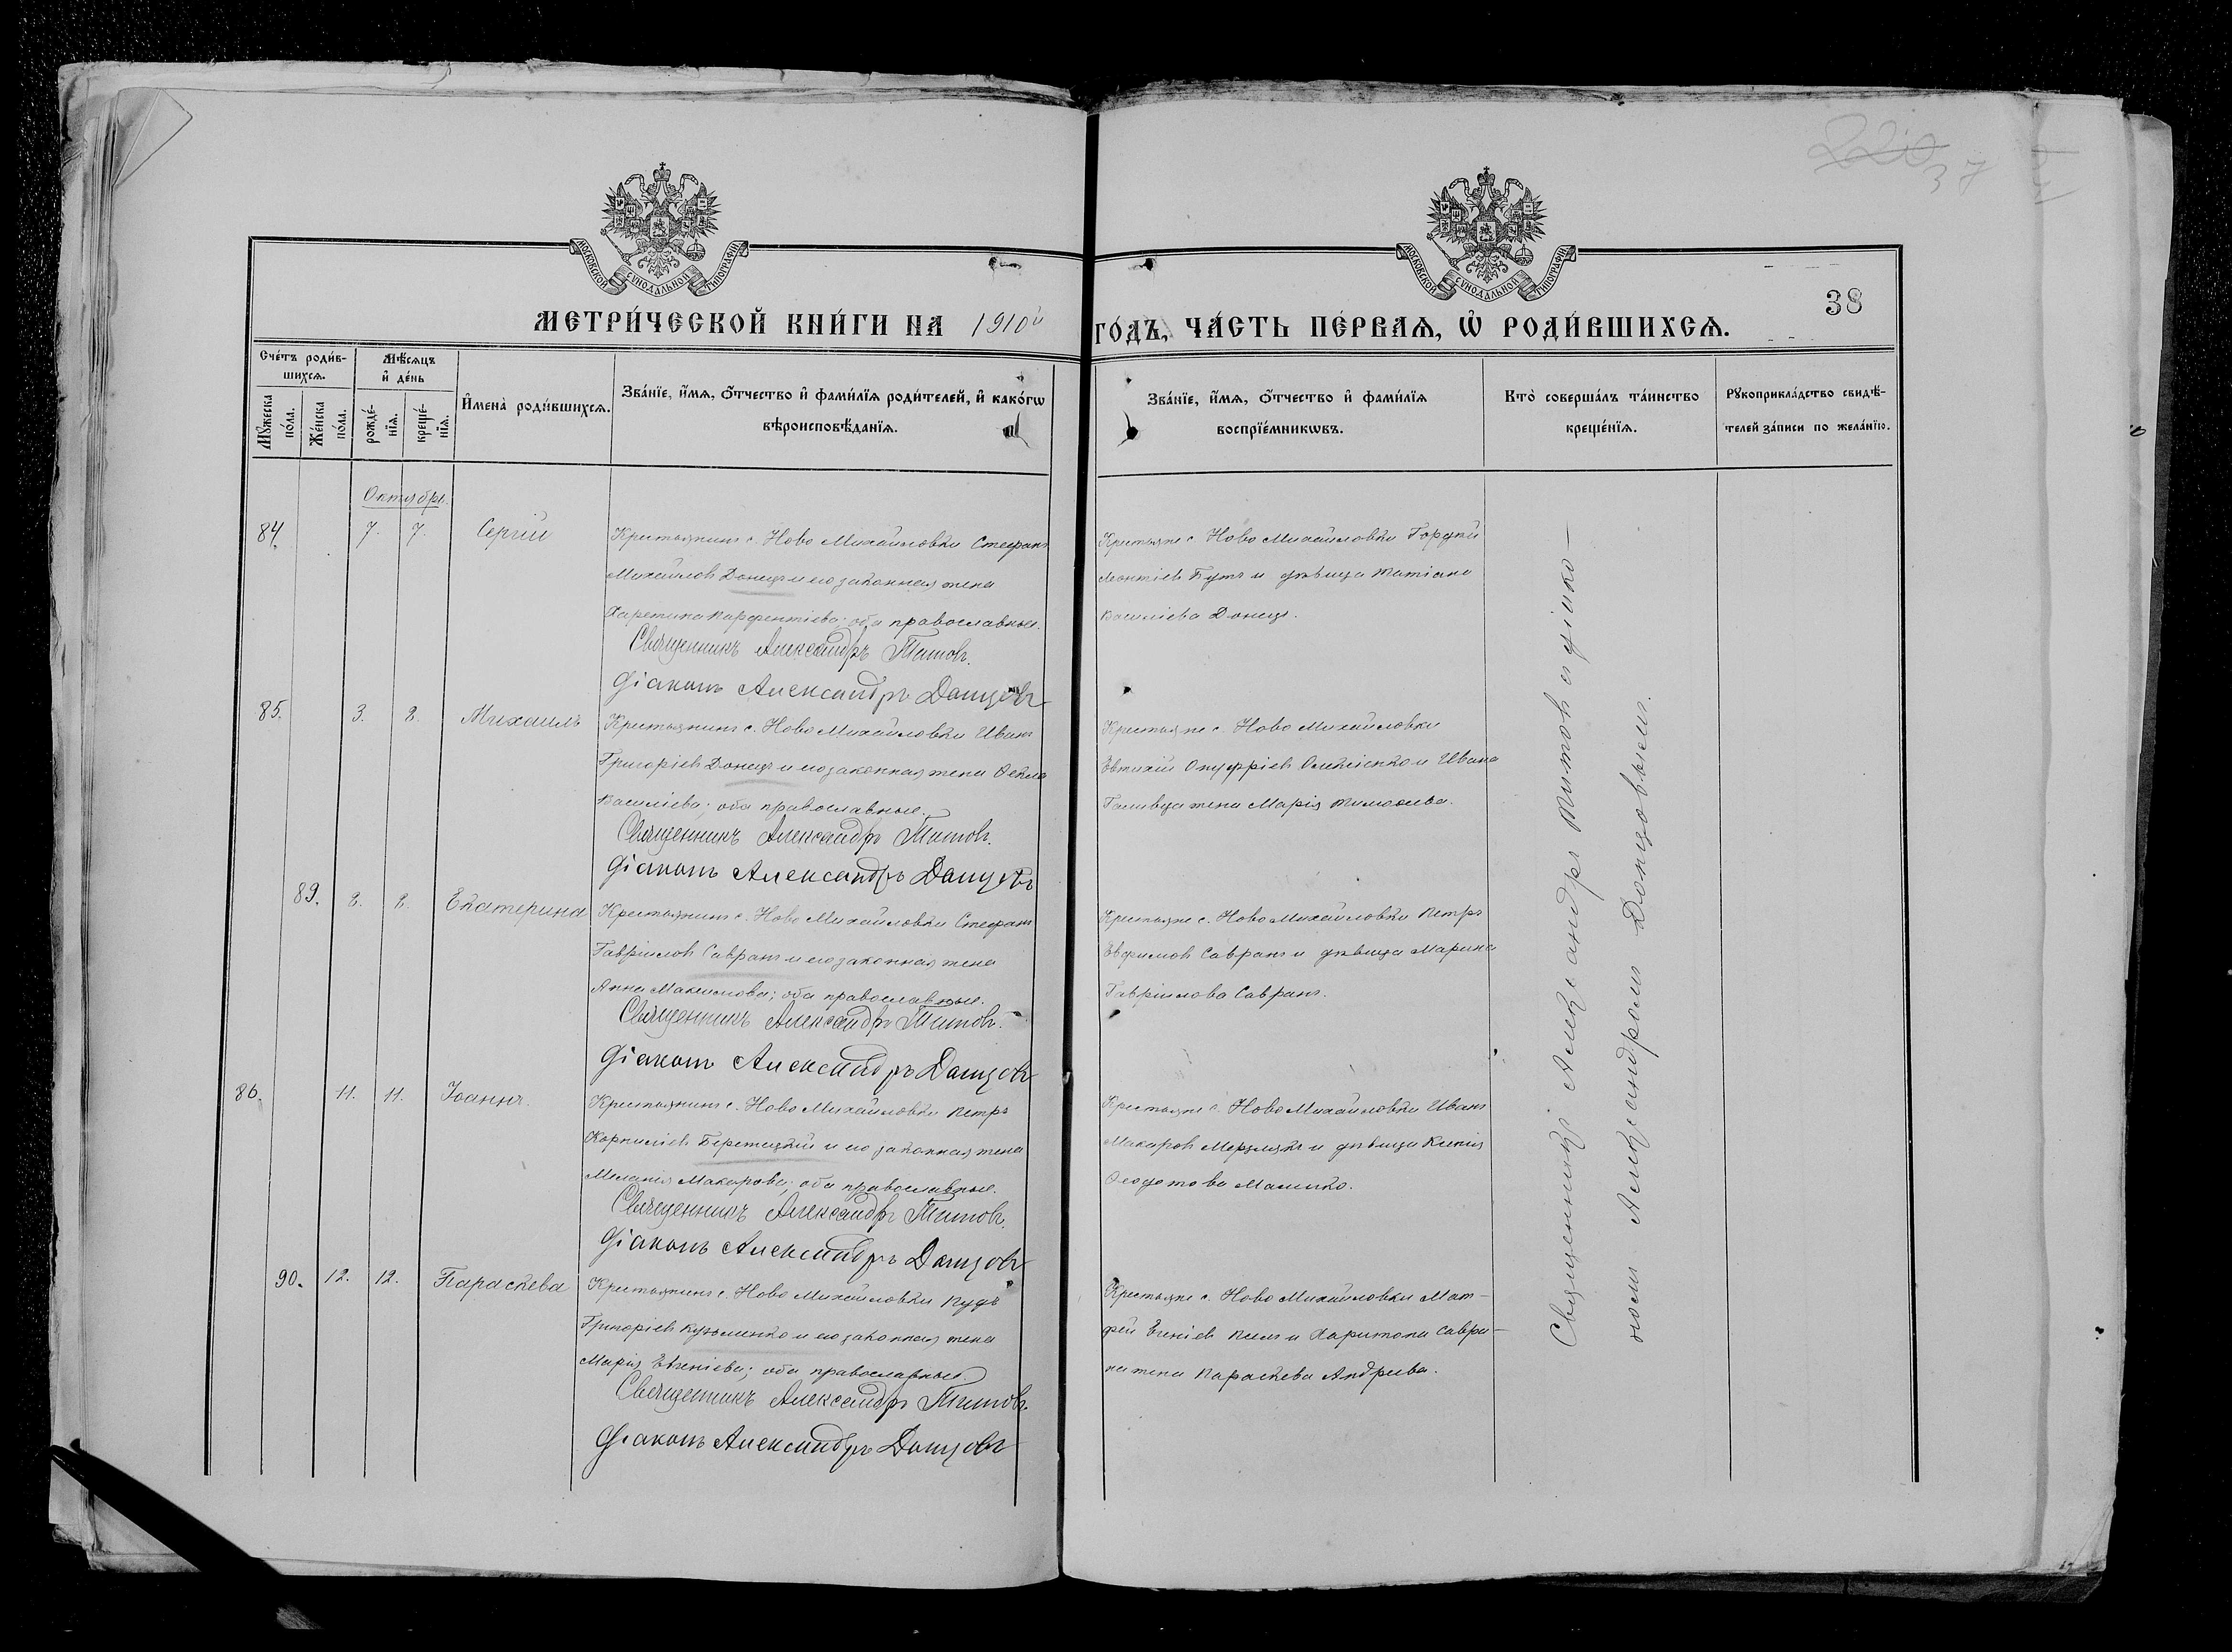 220
37
МОСКОВСКОЙ СѴНОДАЛЬНОЙ ТИПОГРАФІИ
МОСКОВСКОЙ СѴНОДАЛЬНОЙ ТИПОГРАФІИ
38
МЕТРИ́ЧЕСКОЙ КНИ́ГИ НА 1910й ГО́ДЪ, ЧА́СТЬ ПЕ́РВАѦ, Ѡ҆ РОДИ́ВШИХСѦ.
Сче́тъ роди́в-
шихсѧ.
Мꙋжеска по́ла.
Же́нска по́ла.
Мѣ́сѧцъ
и҆ де́нь
рожде́-
нїѧ.
креще́-
нїѧ.
И҆мена̀ роди́вшихсѧ.
Зва́нїе, и҆́мѧ, ѻ҆́тчество и҆ фами́лїѧ роди́телей, и҆ како́гѡ
вѣроисповѣ́данїѧ.
Зва́нїе, и҆́мѧ, ѻ҆́тчество и҆ фами́лїѧ
воспрїе́мникѡвъ.
Кто̀ соверша́лъ та́инство
креще́нїѧ.
Рꙋкоприкла́дство свидѣ́-
телей за́писи по жела́нїю.
Октябрь.
84. 7. 7. Сергій
Крестьянинъ с. Ново Михайловки Стефанъ
Михайловъ Донецъ и его законная жена
Харетина Парфентіева; оба православные.
Священникъ Александръ Титовъ.
Діаконъ Александръ Донцовъ
Крестьяне с. Ново Михайловки
Леонтіевъ Бутъ и дѣвица Татіана
Василіева Донецъ.
85. 3. 8. Михаилъ
Крестьянинъ с. Ново Михайловки Иванъ
Григоріевъ Донецъ и его законная жена Ѳекла
Василіева; оба православные.
Священникъ Александръ Титовъ.
Діаконъ Александръ Донцовъ
Крестьяне с. Ново Михайловки
Евтихій Онуфріевъ Олексіенко и Ивана
жена Марія
89. 8. 8. Екатерина
Крестьянинъ с. Ново Михайловки Стефанъ
Гавріиловъ Савранъ и его законная жена
Анна Максимова; оба православные.
Священникъ Александръ Титовъ.
Діаконъ Александръ Донцовъ
Крестьяне с. Ново Михайловки Петръ
Евфимовъ Савранъ и дѣвица Марина
Гавріилова Савранъ.
86. 11. 11. Іоаннъ.
Крестьянинъ с. Ново Михайловки Петръ
Корниліевъ Беретицкій и его законная жена
Меланія Макарова; оба православные.
Священникъ Александръ Титовъ.
Діаконъ Александръ Донцовъ
Крестьяне с. Ново Михайловки Иванъ
Макаровъ и дѣвица Ксенія
Ѳеодотова
90. 12. 12. Параскева
Крестьянинъ с. Ново Михайловки Пудъ
Григоріевъ Кузьменко и его законная жена
Марія Евгеніева; оба православные
Священникъ Александръ Титовъ.
Діаконъ Александръ Донцовъ
Крестьяне с. Ново Михайловки Мат-
фей Евгеніевъ и Харитона Савра-
на жена Параскева Андреева.
Священникъ Александръ Титовъ съ діако-
номъ Александромъ Донцовымъ.